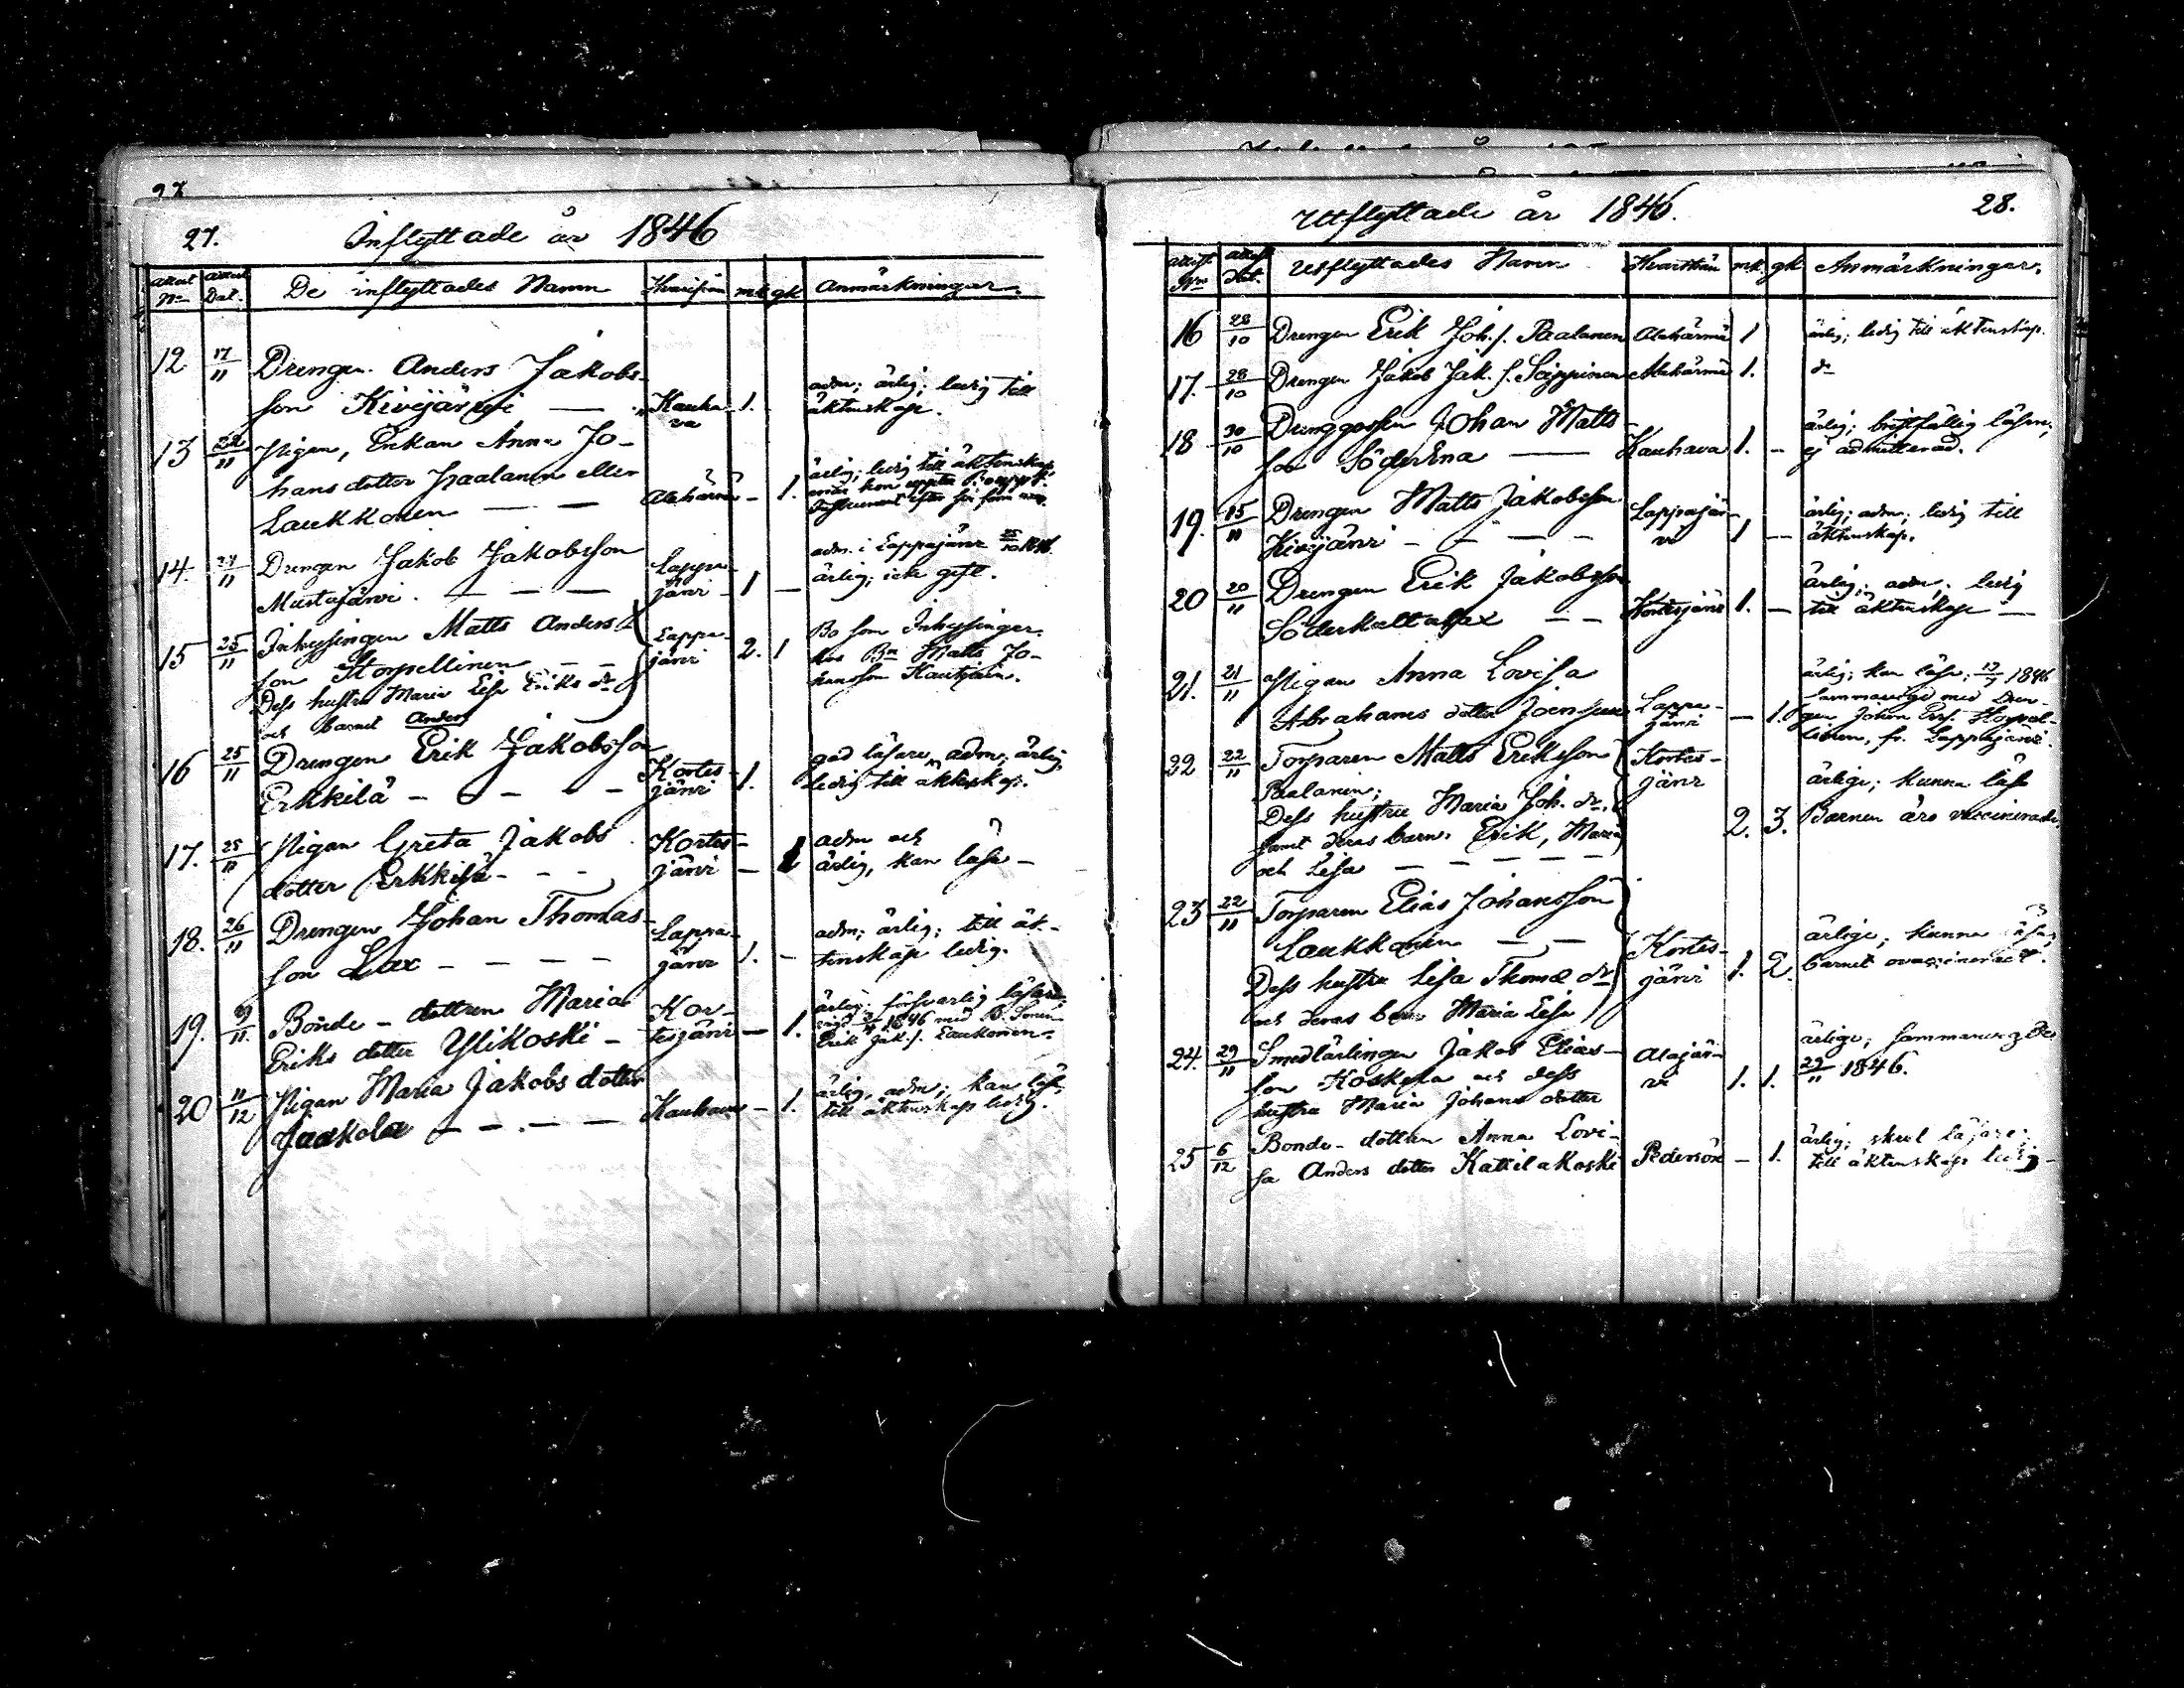 27.
Inflyttade år 1846
Attest No
Attest Dat.
De inflyttades Namn
Hvarifrån
mk
gk
Anmärkningar.
12
17/11
Drengen Anders Jakobs-
son Kivijärvi —
Kauha-
va
1.
adm; ärlig; ledig till
äktenskap.
13
22/11
Pigan, Enkan Anna Jo-
hans dotter Paalanen eller
Laukkonen — —
Alahärmä
-
1.
ärlig; ledig till äktenskap,
14.
24/11
Drengen Jakob Jakobsson
Mustajärvi. — — —
Lappa-
järvi
1
—
adm. i Lappajärvi 1846.
ärlig; icke gift.
15
25/11
Inhysingen Matts Anders
son Storpellinen — —
Dess hustru Maria Lisa Eriks dr
och barnet Anders
Lappa-
järvi
2.
1
Bo som Inhysingar
hos Bn Matts Jo-
hansson
16
25/11
Drengen Erik Jakobsson
Erkkilä - - - - -
Kortes-
järvi
1.
god läsare, adm; ärlig,
ledig till äktenskap.
17.
25/11
Pigan Greta Jakobs
dotter Erkkilä - - -
Kortes-
järvi
—
1
adm och
ärlig, kan läsa —
18.
26/11
Drengen Johan Thomas-
son Lax - - - -
Lappa-
järvi
1.
-
adm; ärlig; till äk-
tenskap ledig.
19.
Bonde - dottren Maria
Eriks dotter Ylikoski -
Kor-
tesjärvi
—
1.
ärlig; försvarlig läsare,
1846 med
Erik Jak. s. Laukonen.
20
11/12
Pigan Maria Jakobs dotter
Jaakola — - . — —
Kauhava
-
1.
ärlig, adm; kan läsa,
till äktenskap ledig.
Utflyttade år 1846.
28.
Attest No
Attest Dat.
Utflyttades Namn
Hvarthän
mk.
gk
Anmärkningar.
16
28/10
Drengen Erik Joh. s. Paalanen
Alahärmä
1
ärlig; ledig till äktenskap.
17.
28/10
Drengen Jakob Jak. s. Seippinen
Alahärmä
1.
do
18
30/10
Drenggossen Johan Matts-
son Söderena —
Kauhava
1.
-
ärlig; bristfällig läsare;
ej admitterad.
19.
15/11
Drengen Matts Jakobsson
Kivijärvi - - - -
Lappajär-
vi
1
—
ärlig; adm; ledig till
äktenskap.
20
20/11
Drengen Erik Jakobsson
Söderkaltalax — —
Kortesjärvi
1.
—
ärlig; adm; ledig
till äktenskap —
21.
21/11
Pigan Anna Lovisa
Abrahams dotter Joensuu
Lappa-
järvi
—
1.
ärlig; kan läsa; 1846
sammanvigd med Dren-
gen Johan
fr. Lappajärvi.
22
22/11
Torparen Matts Eriksson
Paalanen;
Dess hustru Maria Joh. dr,
samt deras barn: Erik, Maria
och Lisa - - - - -
Kortes-
järvi
2.
3.
ärliga; kunna läsa
Barnen äro vaccinerade
23
22/11
Torparen Elias Johansson
Laukkonen — —
Dess hustru Lisa Thomæ dr
och deras barn Maria Lisa
Kortes-
järvi
1.
2.
ärliga; kunna läsa;
barnet ovaccineradt.
24.
29/11
Smedlärlingen Jakob Elias-
son Koskela och dess
hustru Maria Johans dotter
Alajär-
vi
1.
1.
ärliga; sammanvigde
29/11 1846.
25
6/12
Bonde - dottren Anna Lovi-
sa Anders dotter Kattilakoski
Pedersöre
-
1.
ärlig; skral läsare;
till äktenskap ledig -